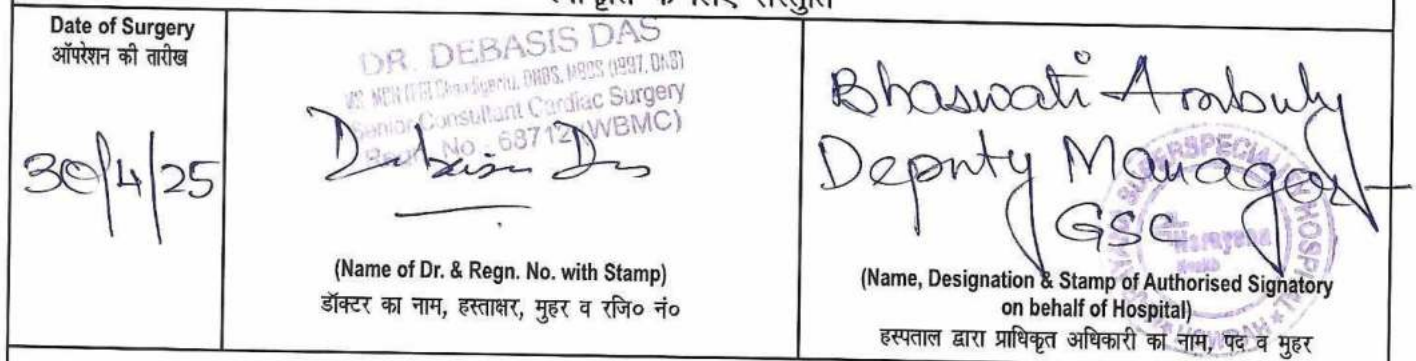 Date of Surgery
ऑपरेशन की तारीख
30/4/25
DR. DEBASIS DAS
Senior Consultant Cardiac Surgery
Regn. No. 68712 (WBMC)
Debasis Das
(Name of Dr. & Regn. No. with Stamp)
डॉक्टर का नाम, हस्ताक्षर, मुहर व रजि० नं०
Bhaswati
Deputy Manager
GSC
SUPERSPECIALITY HOSPITAL
Narayana
Health
HOWRAH
(Name, Designation & Stamp of Authorised Signatory
on behalf of Hospital)
हस्पताल द्वारा प्राधिकृत अधिकारी का नाम, पद व मुहर